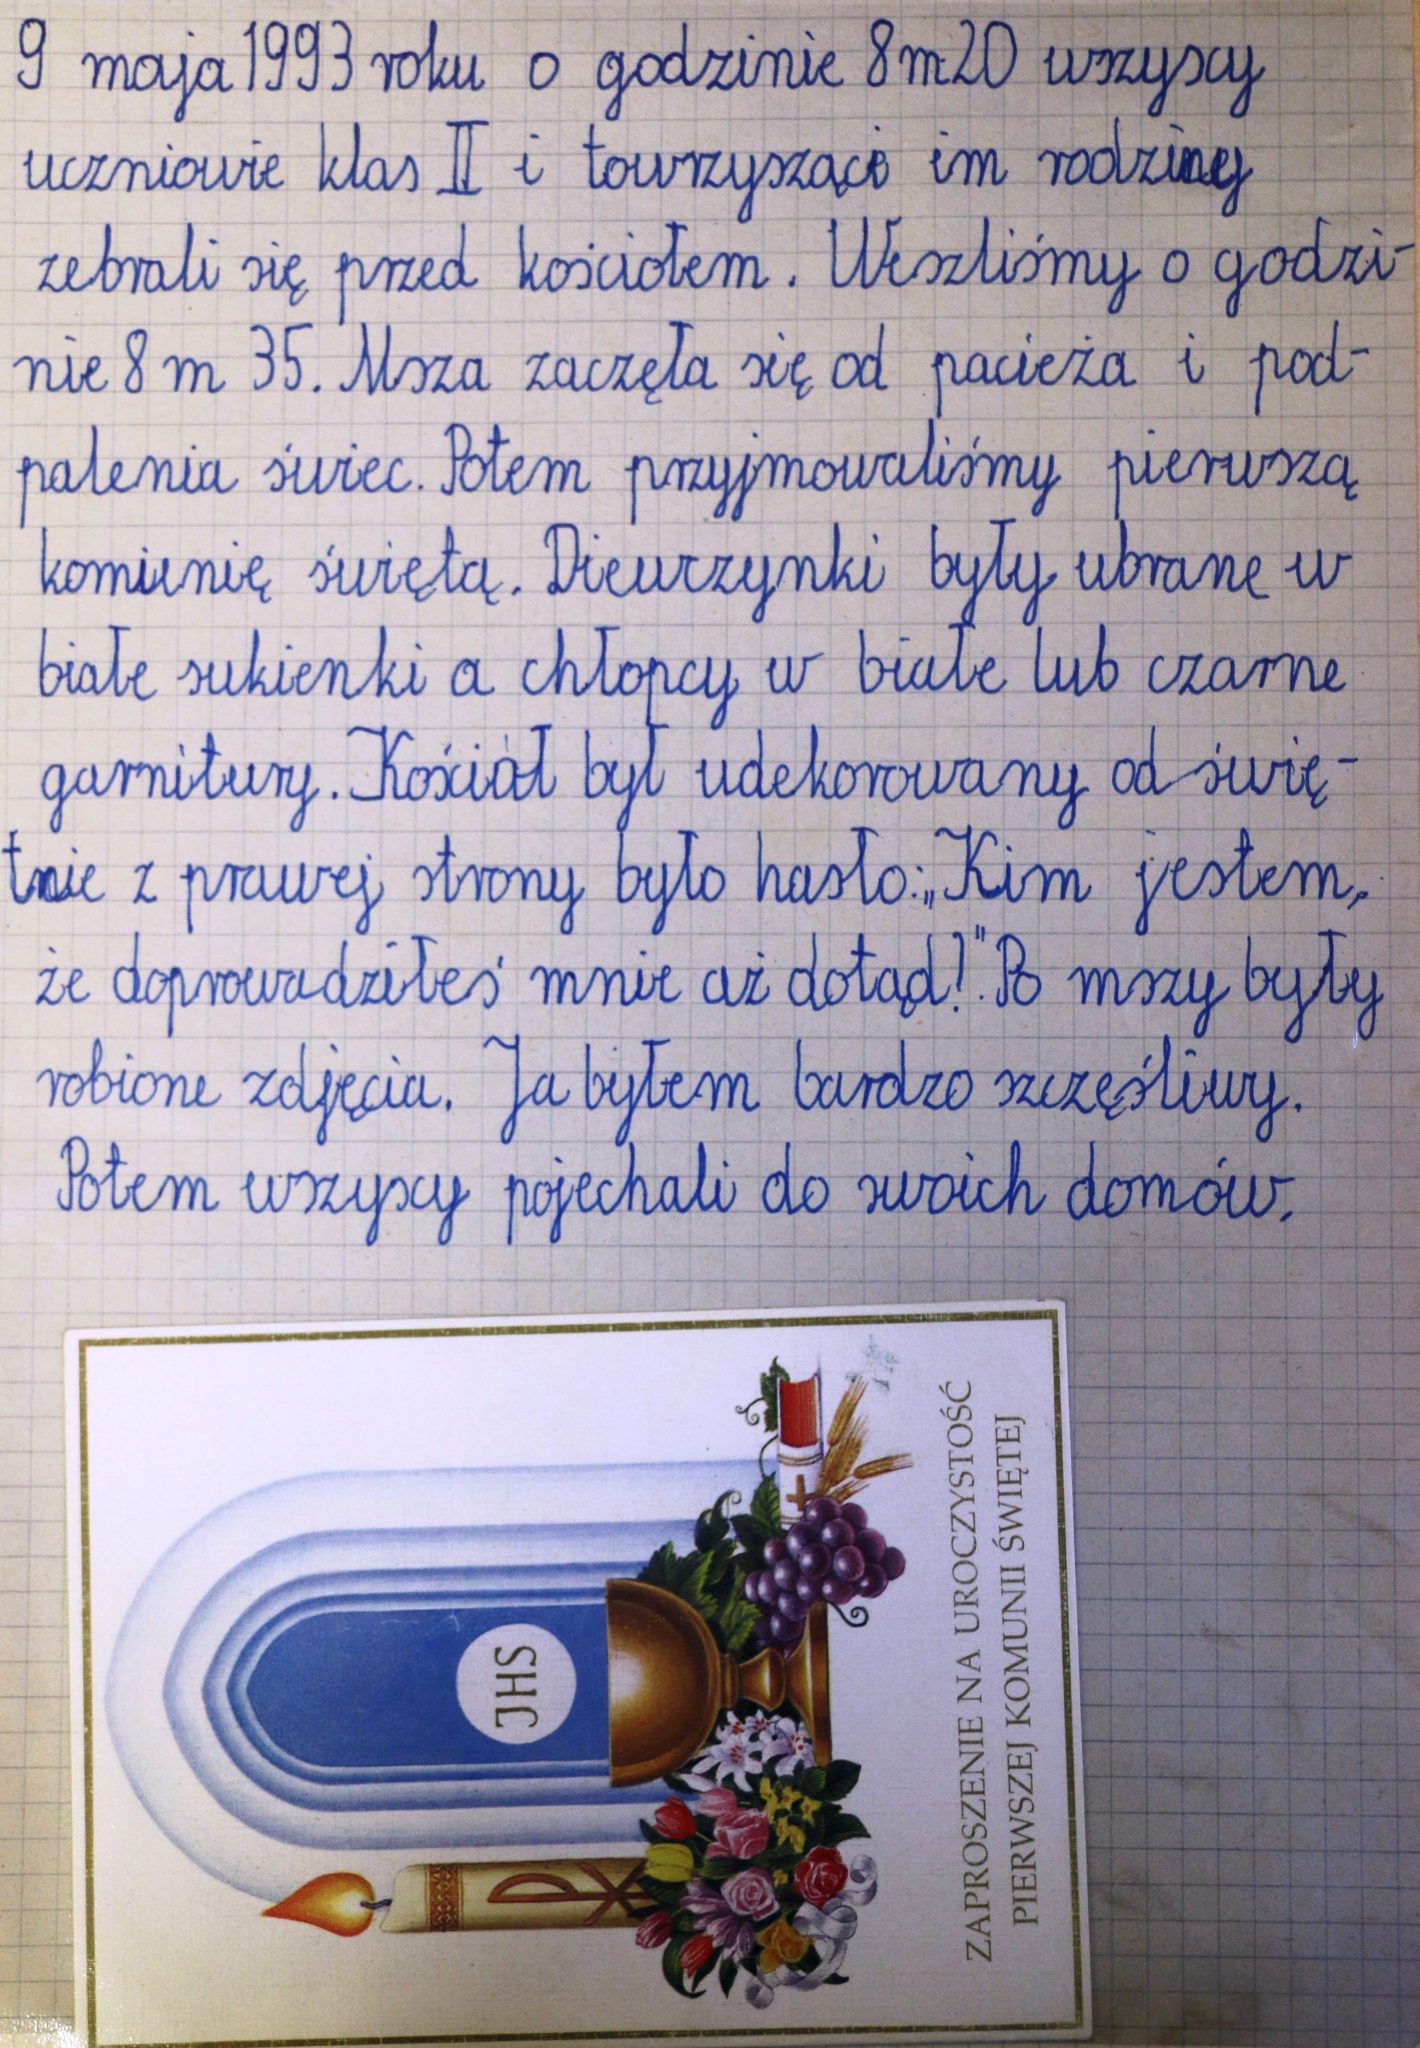 9 maja 1993 roku o godzinie 8 m 20 wszyscy
uczniowie klas II i towrzyszące im rodziny
zebrali się przed kościołem. Weszliśmy o godzi-
nie 8 m 35. Msza zaczęła się od pacieża i pod-
palenia świec. Potem przyjmowaliśmy pierwszą
komienię świętą. Diewczynki były ubrane w
białe sukienki a chłopcy w białe lub czarne
garnitury. Kośiół był udekorowany od świę-
tnie z prawej strony było hasło: „Kim jestem,
że doprowadziłeś mnie aż dotąd!". Po mszy były
robione zdjęcia. Ja byłem bardzo szczęśliwy.
Potem wszyscy pojechali do swoich domów.
JHS
ZAPROSZENIE NA UROCZYSTOŚĆ
PIERWSZEJ KOMUNII ŚWIĘTEJ